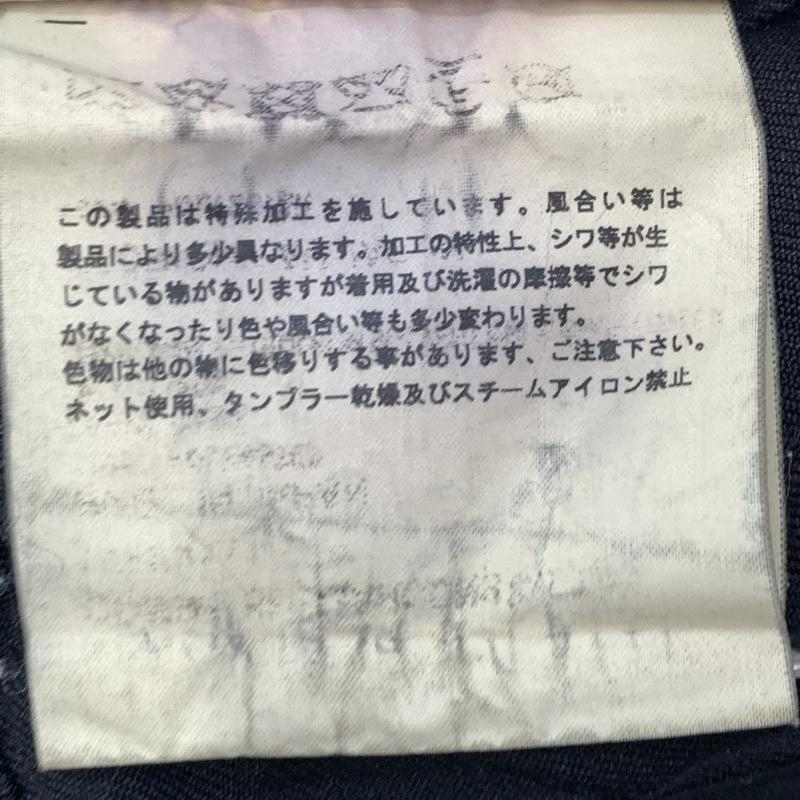 この製品は特殊加工を施しています。風合い等は
製品により多少異なります。加工の特性上、シワ等が生
じている物がありますが着用及び洗濯の摩擦等でシワ
がなくなったり色や風合い等も多少変わります。
色物は他の物に色移りする事があります、ご注意下さい。
ネット使用、タンブラー乾燥及びスチームアイロン禁止